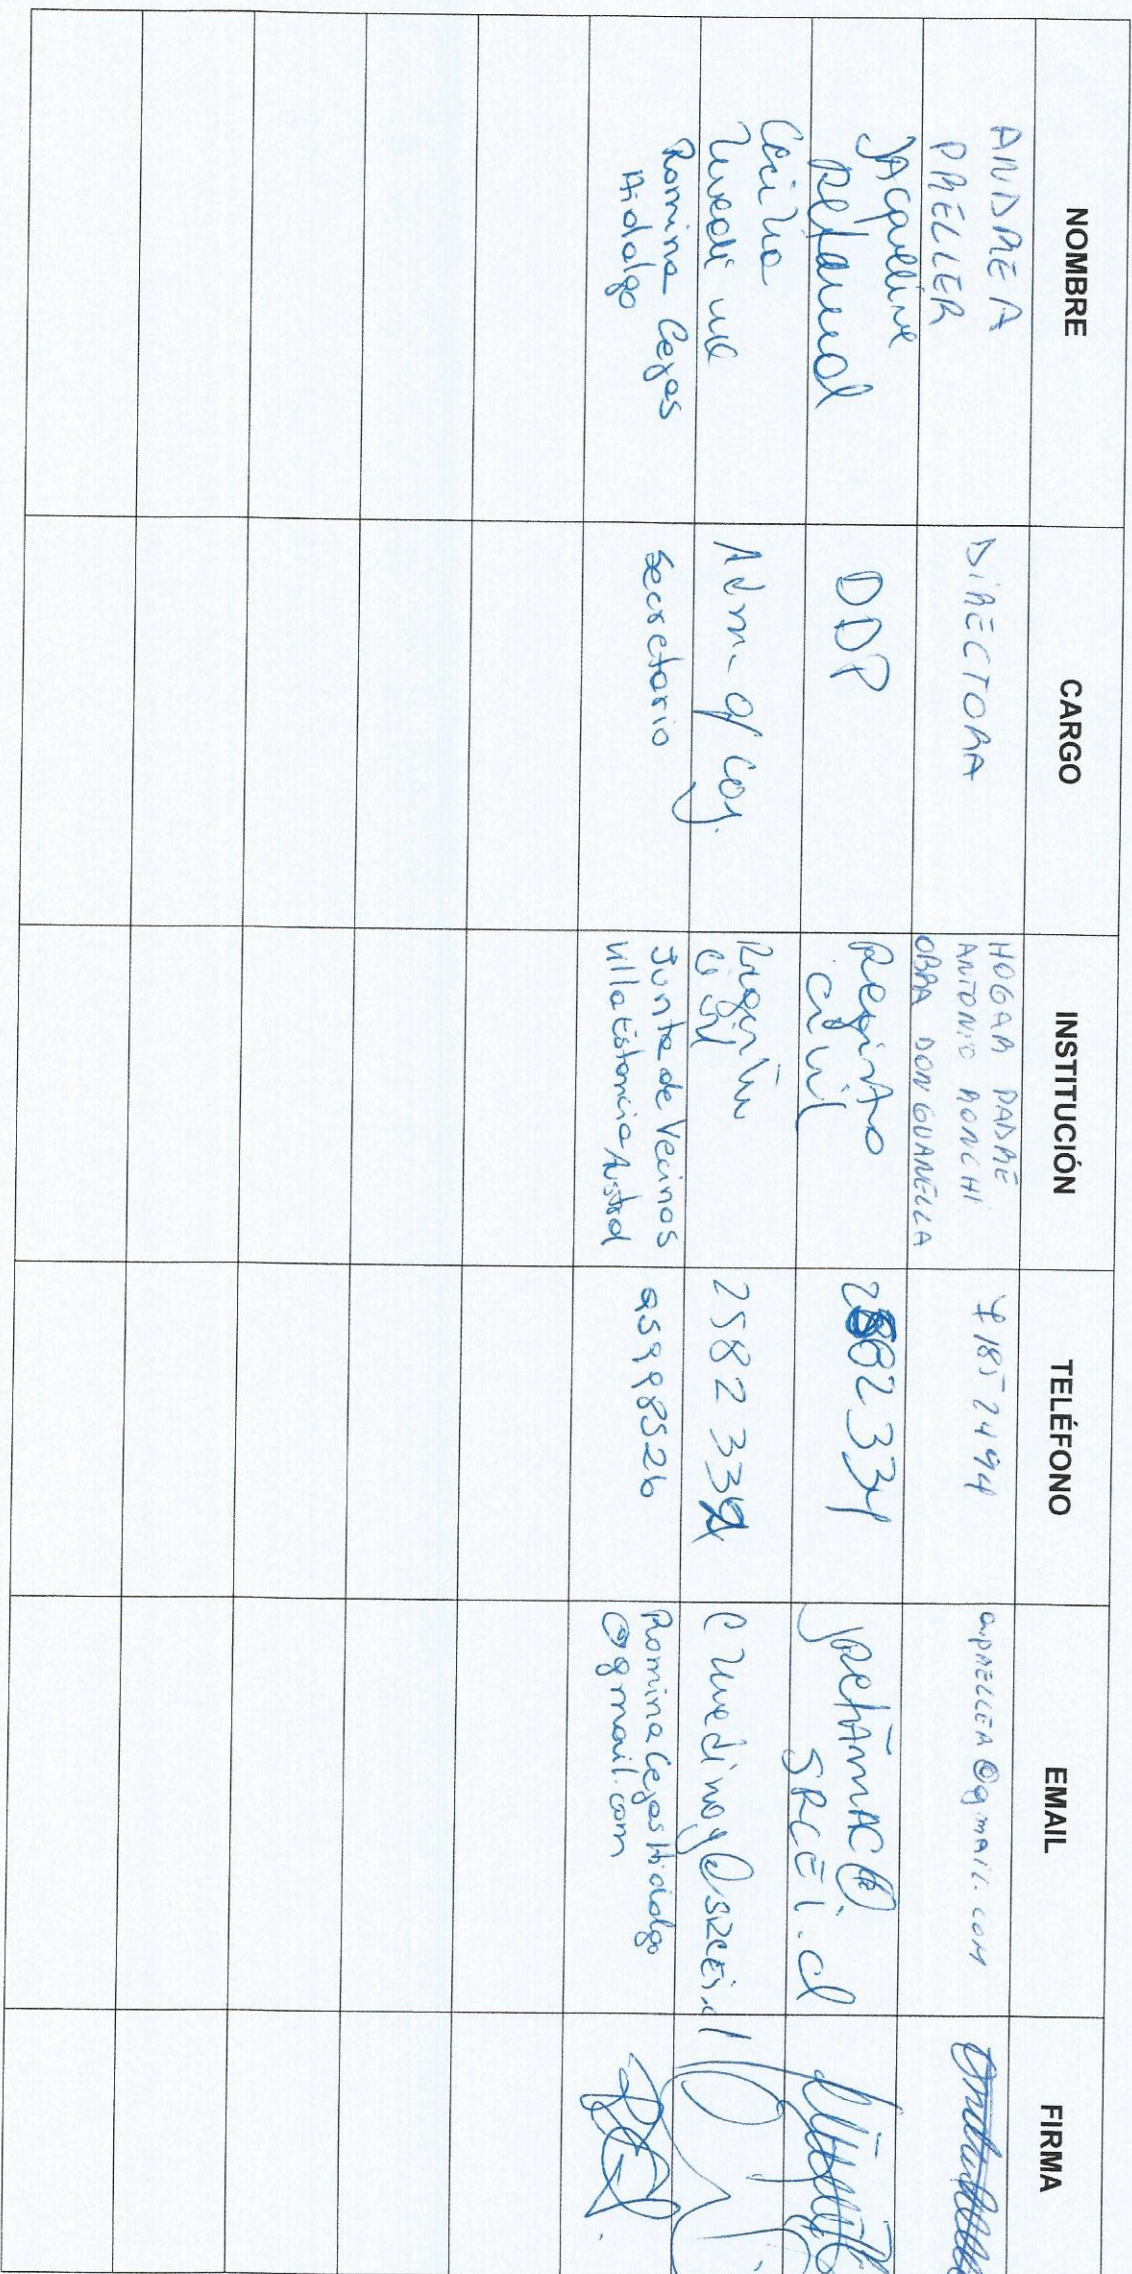 NOMBRE CARGO INSTITUCIÓN TELÉFONO EMAIL FIRMA
ANDREA
PRELLER
DIRECTORA
HOGAR PADRE
ANTONIO RONCHI
OBRA DON GUANELLA
apreller@gmail.com
Jacqueline
Retamal
DDP
Registro
Civil
SRCEI.cl
Cecilia
Adm. of Coy.
Registro
Civil
2582 332
Romina Cejas
Hidalgo
Secretario
Junta de Vecinos
Villa Estancia Austral
95998526
RominaCejasHidalgo
@gmail.com